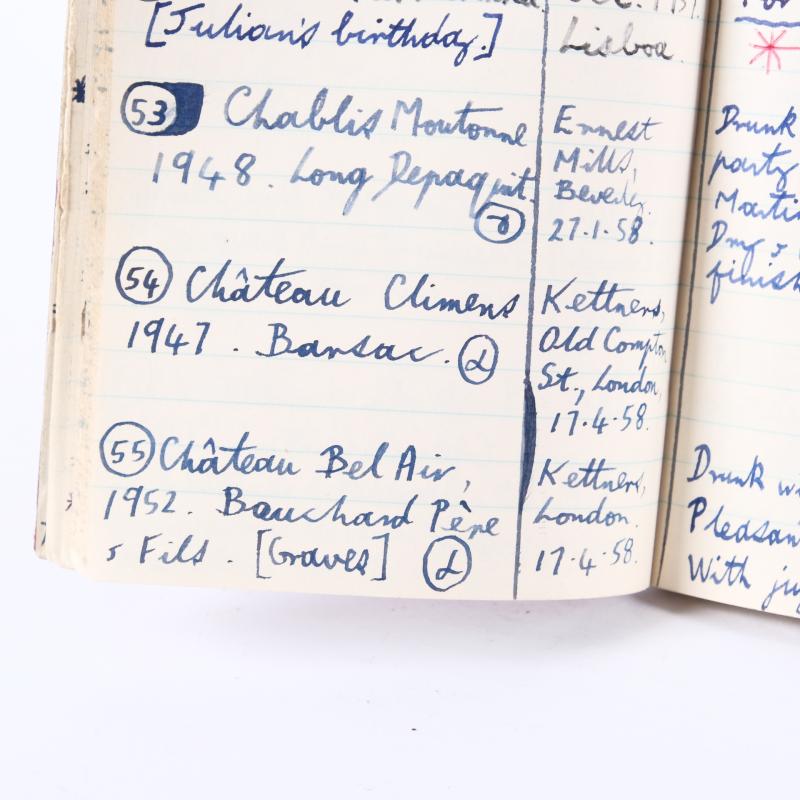 [Julian's birthday.]
Lisboa.
53 Chablis Moutonne
1948. Long Depaquit.
γ
Ernest
Mills,
Beverley.
27.1.58.
54 Château Climens
1947. Barsac. α
Kettners,
Old Compton
St., London,
17.4.58.
55 Château Bel Air,
1952. Bouchard Père
& Fils. [Graves] α
Kettners,
London.
17.4.58.
Drunk
party
finish
Drunk
With